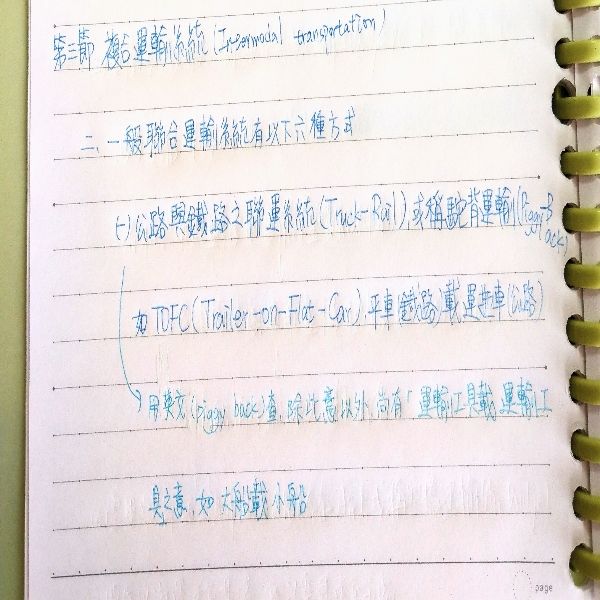 第三節 複合運輸系統(Intermodal transportation)
二、一般聯合運輸系統有以下六種方式
(一)公路與鐵路之聯運系統(Truck-Rail),或稱駝背運輸(Piggy-Back)
如TOFC(Trailer-on-Flat-Car),平車(鐵路)載運拖車(公路)
用英文(piggy back)查,除此意以外,尚有「運輸工具載運輸工
具之意,如大船載小船
page